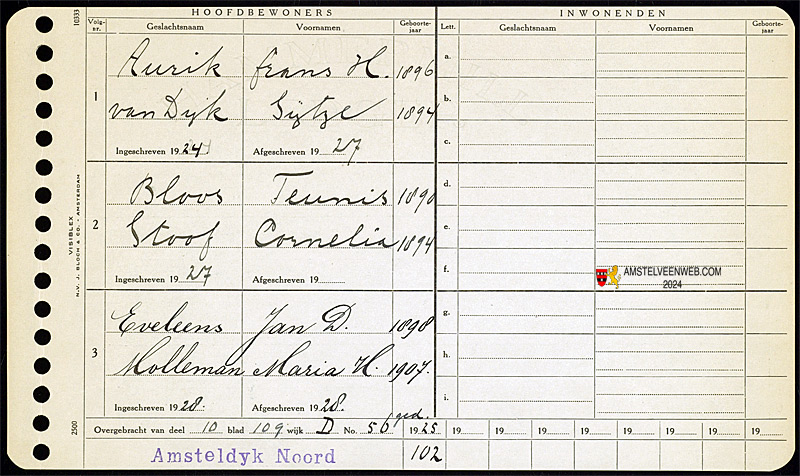 10333
HOOFDBEWONERS INWONENDEN
Volg-nr. Geslachtsnaam Voornamen Geboorte-jaar Lett. Geslachtsnaam Voornamen Geboorte-jaar
1
Aurik frans H. 1896
van Dijk Sijtze 1894
Ingeschreven 1924 Afgeschreven 1927
2
Bloos Teunis 1890
Stoof Cornelia 1894
Ingeschreven 1927 Afgeschreven 19
3
Eveleens Jan D. 1898
Molleman Maria H. 1907.
Ingeschreven 1928. Afgeschreven 1928.
a.
b.
c.
d.
e.
f.
g.
h.
i.
AMSTELVEENWEB.COM
2024
ged.
Overgebracht van deel 10 blad 109 wijk D No. 56 1925 19 19 19 19 19 19 19 19
Amsteldyk Noord 102
VISIBLEX
N.V. J. BLOCH & CO. - AMSTERDAM
2500